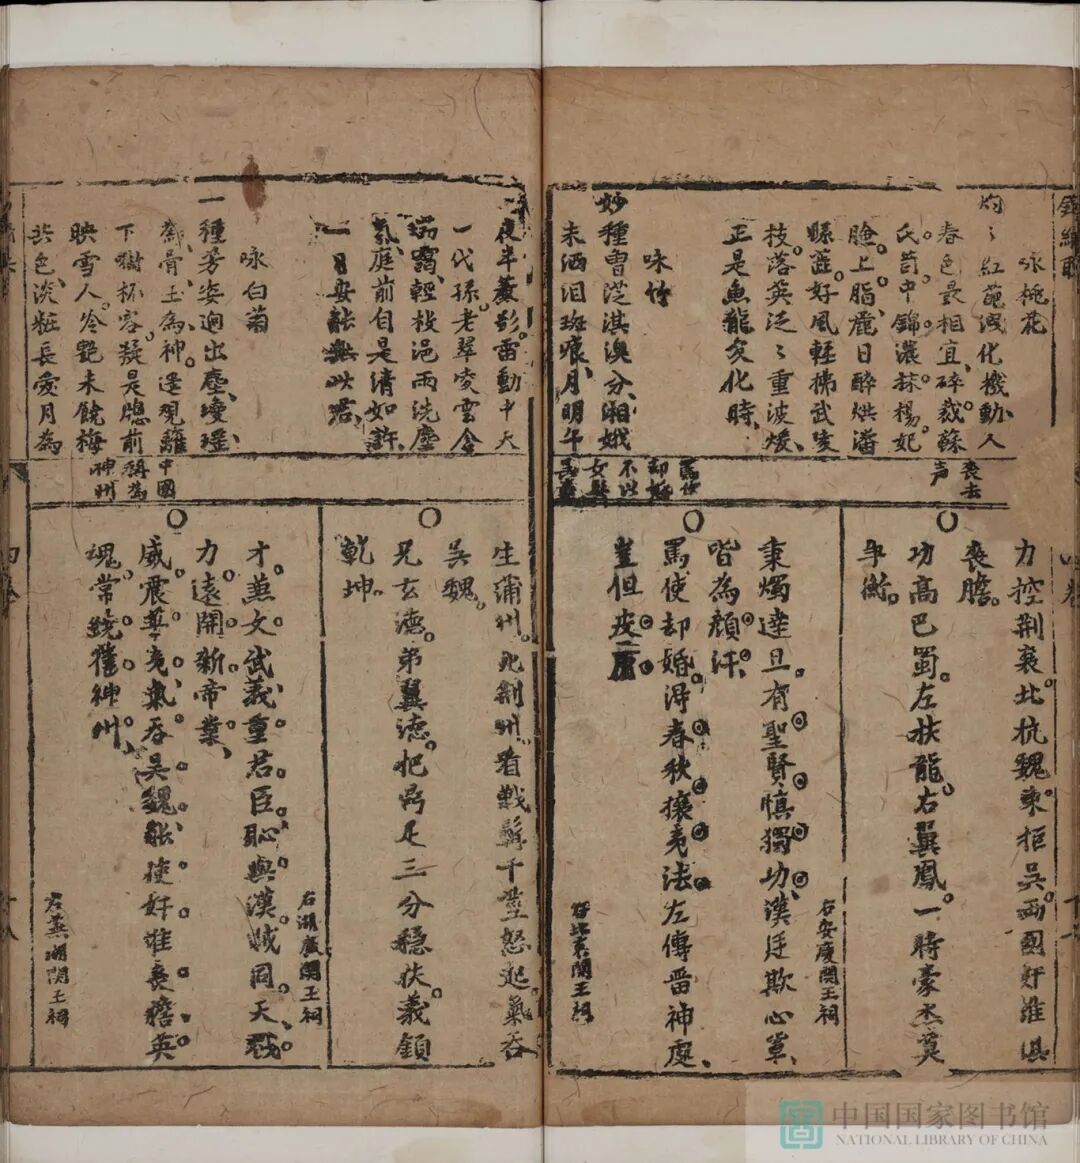 咏桃花
灼〻紅葩洩化機動人
春色最相宜碎裁蘇
氏笥中錦濃抹楊妃
臉上脂麗日醉烘潘
縣蕋好風輕拂武陵
枝落英泛〻重波煖
正是魚龍変化時
咏竹
妙種曽從淇澳分湘娥
未洒泪斑痕月明午
夜半蒼影雷動中天
一代孫老翠凌雲含
瑞靄輕枝浥雨洗塵
氛庭前自是清如許
一日安能無此君
咏白菊
一種芳姿迥出塵瓊瑤
為骨玉為神遥観籬
下樹杯容凝是牕前
映雪人冷艷未饒梅
共色淡粧長愛月為
喪去
声
罵使
却婚
不以
女妻
中國
稱為
神州
四卷
力控荆襄北抗魏東拒吳両國奸雄俱
喪膽
功高巴蜀左扶龍右翼鳳一時豪杰莫
争衡
右安慶関王祠
秉燭達旦有聖賢慎獨功漢廷欺心輩
皆為顔汗
罵使却婚得春秋攘夷法左傳晋神處
豈但皮膚
右北京関王祠
生蒲州死荆州看戟髯千疊怒起氣吞
吳魏
兄玄德弟翼德把鼎足三分穩扶義鎮
乾坤
右湖廣関王祠
才兼文武義重君臣恥與漢賊同天戮
力遠開新帝業
威震華夷氣吞吳魏能使奸雄喪膽英
魂常繞舊神州
右蕪湖関王祠
中国国家图书馆
NATIONAL LIBRARY OF CHINA